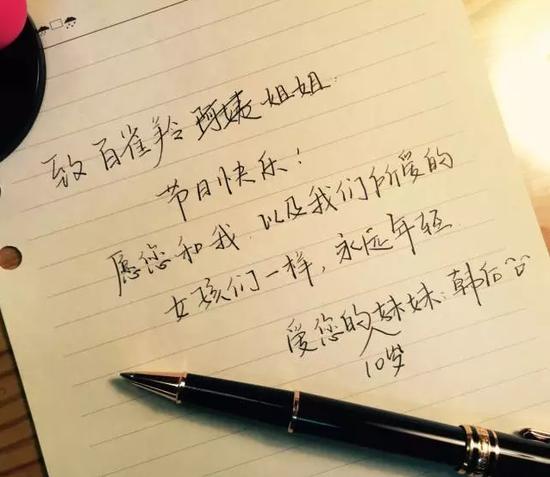 致百雀羚阿姨姐姐:
节日快乐!
愿您和我,以及我们所爱的
女孩们一样,永远年轻.
爱您的小妹妹:韩后
10岁